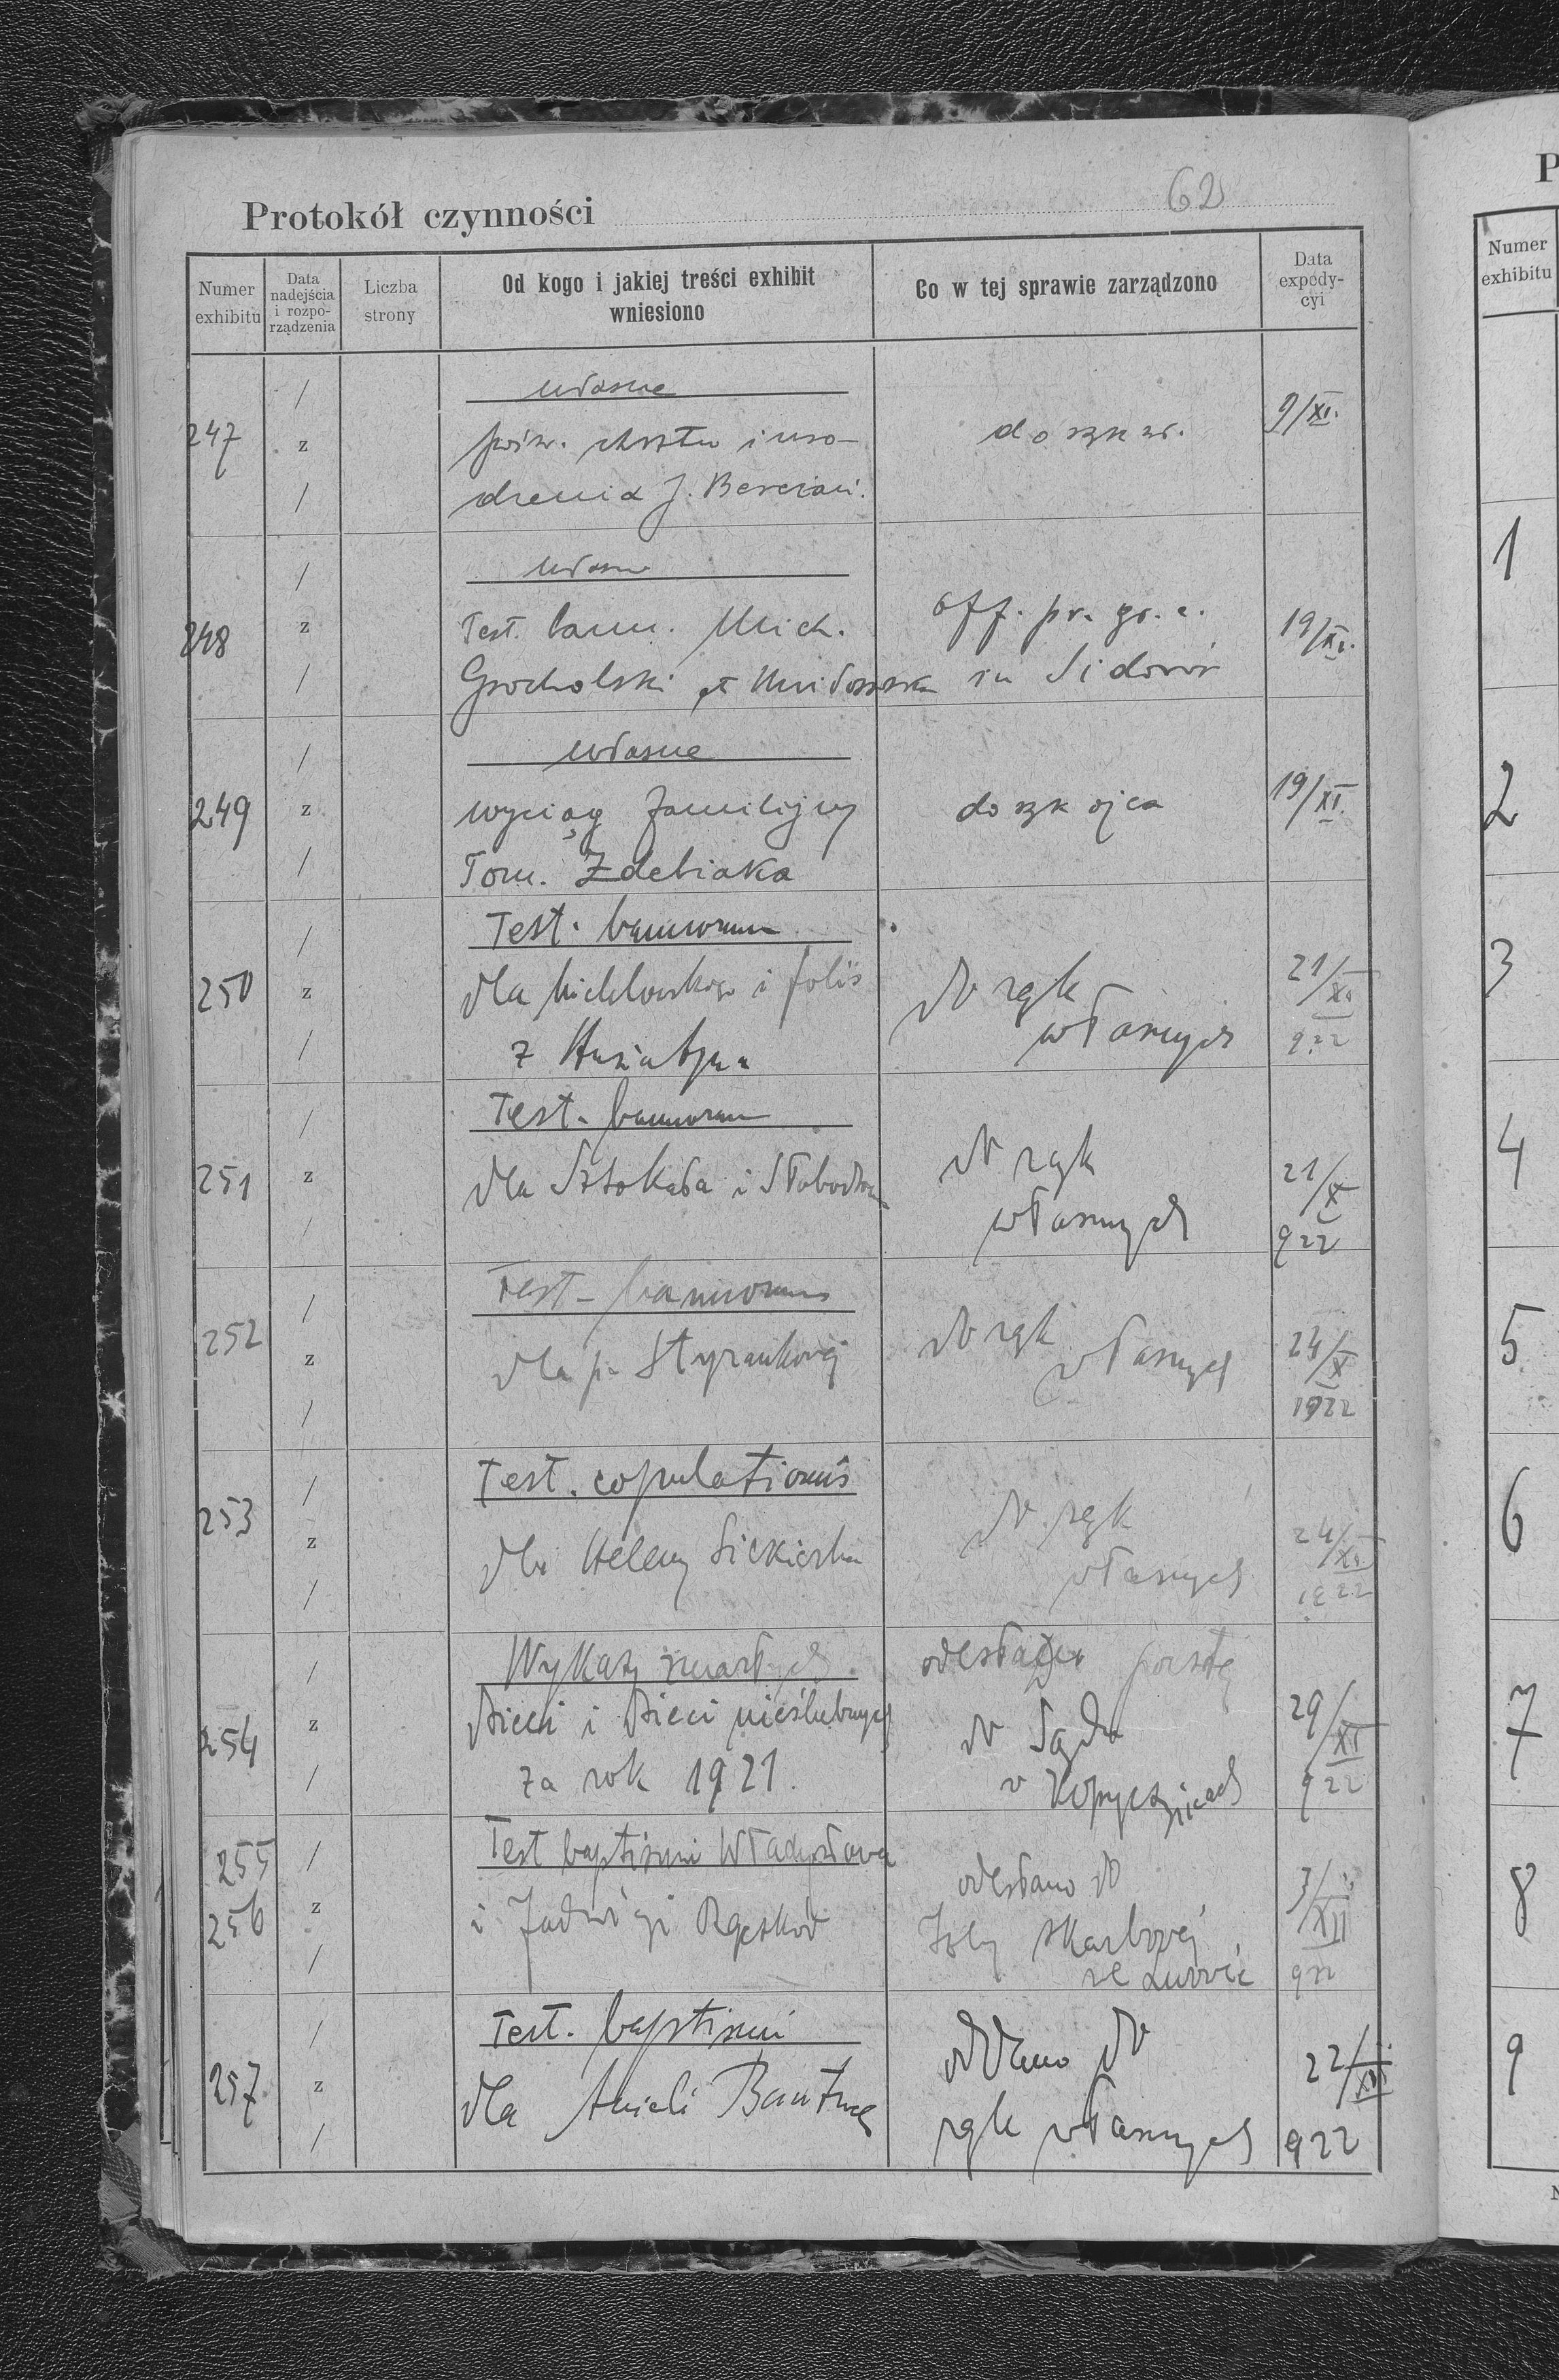 62
Protokół czynności
Numer exhibitu
Data nadejścia i rozporządzenia
Liczba strony
Od kogo i jakiej treści exhibit wniesiono
Co w tej sprawie zarządzono
Data expedycyi
własne
247 / z / pośw. chrztu i uro-
drenia J.
9/XI.
własne
248 / z / Test. bann. Mich.
Grocholski et
off. pr. gr. c.
in Sidorów
19/XI.
własne
249 / z / wyciąg familijny
Tom. Zdebiaka
do rąk ojca
19/XI.
Test. bannorum
250 / z / dla i
z Husiatyna
do rąk
własnych
21/XI.
922
Test. bannorum
251 / z / dla i
do rąk
własnych
21/X
922
Test. bannorum
252 / z / dla p. Styrankovej
do rąk
własnych
24/X
1922
Test. copulationis
253 / z / dla Heleny
do rąk
własnych
24/XI.
1922
Wykazy zmarłych
254 / z / dzieci i dzieci nieślubnych
za rok 1921.
pocztą
do Sądu
w Kopyczyńcach
29/XI
922
Test baptismi Władysława
255
256 / z / i Jadwigi
odesłano do
Izby skarbovej
we Lwowie
3/XII
922
Test. baptismi
257 / z / dla Anieli
oddano do
rąk własnych
22/XII
922
P
Numer exhibitu
1
2
3
4
5
6
7
8
9